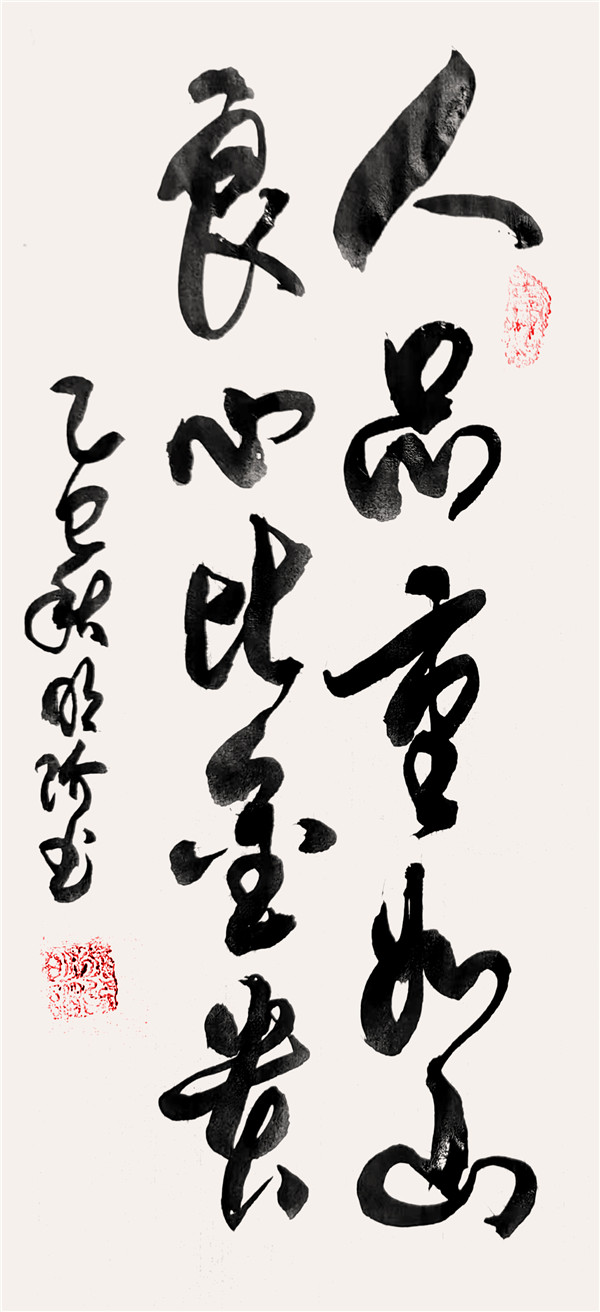 人品重如山
良心比金贵
乙巳秋明阶书